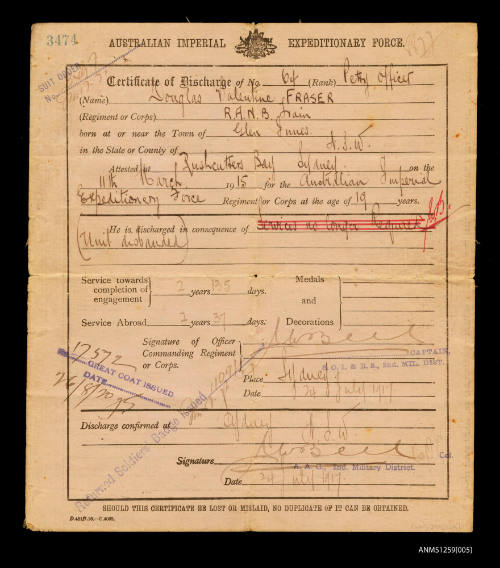 3474
AUSTRALIAN IMPERIAL EXPEDITIONARY FORCE.
SUIT ORDER
No.
Certificate of Discharge of No. 64 (Rank) Petty Officer
(Name) Douglas Valentine FRASER
(Regiment or Corps) R.A.N.B. Train
born at or near the Town of Glen Innes
in the State or County of N.S.W.
Attested at Rushcutters Bay Sydney on the
11th March 1915 for the Australian Imperial
Expeditionary Force Regiment or Corps at the age of 19 years.
He is discharged in consequence of Services no longer Required
(Unit disbanded)
Service towards completion of engagement 2 years 135 days.
Medals and Decorations
Service Abroad 2 years 37 days.
Signature of Officer Commanding Regiment or Corps.
CAPTAIN,
S.O.I. & R.S., 2nd. MIL. DIST.
17572
GREAT COAT ISSUED
DATE
Returned Soldiers Badge Issued
Place Sydney
Date 24 July 1917
Discharge confirmed at Sydney N.S.W.
Signature
Col.
A.A.G., 2nd. Military District.
Date 24 July 1917
SHOULD THIS CERTIFICATE BE LOST OR MISLAID, NO DUPLICATE OF IT CAN BE OBTAINED.
ANMS1259[005]